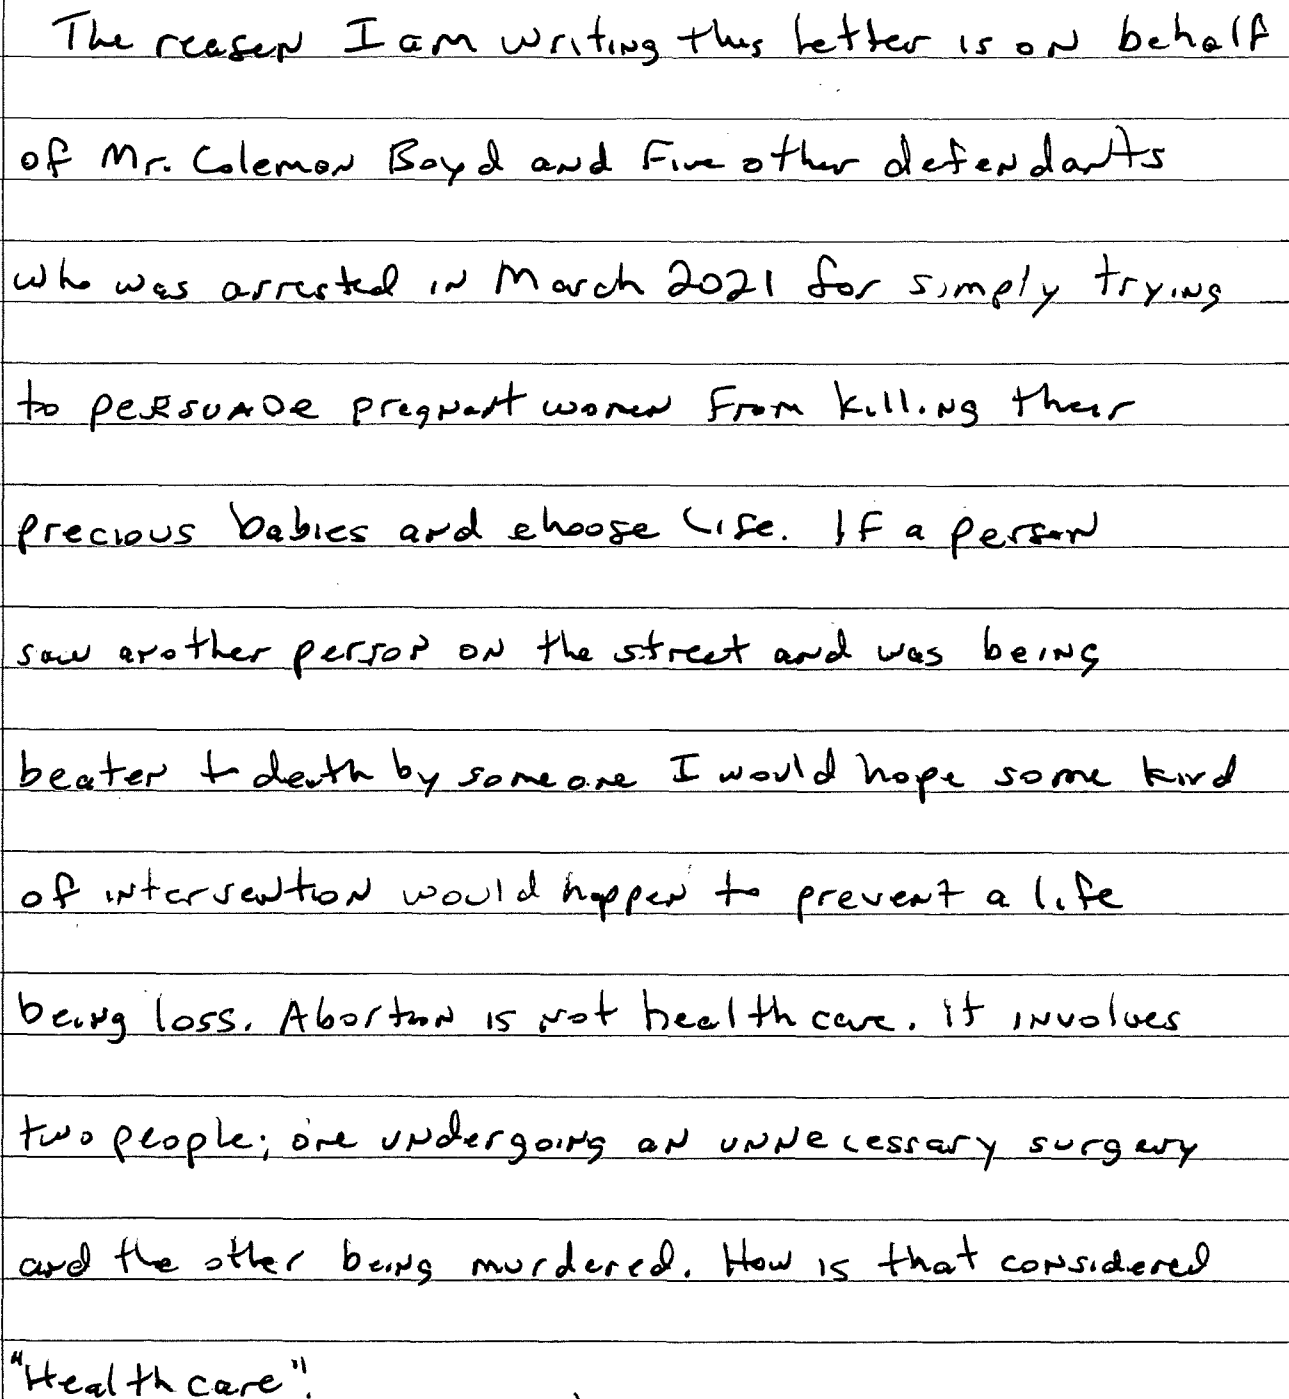 The reason I am writing this letter is on behalf
of Mr. Colemon Boyd and Five other defendants
who was arrested in March 2021 for simply trying
to persuade pregnant women From killing their
precious babies and choose life. If a person
saw another person on the street and was being
beaten to death by someone I would hope some kind
of intervention would happen to prevent a life
being loss. Abortion is not health care. it involves
two people; one undergoing an unnecessary surgery
and the other being murdered. How is that considered
"Health care".